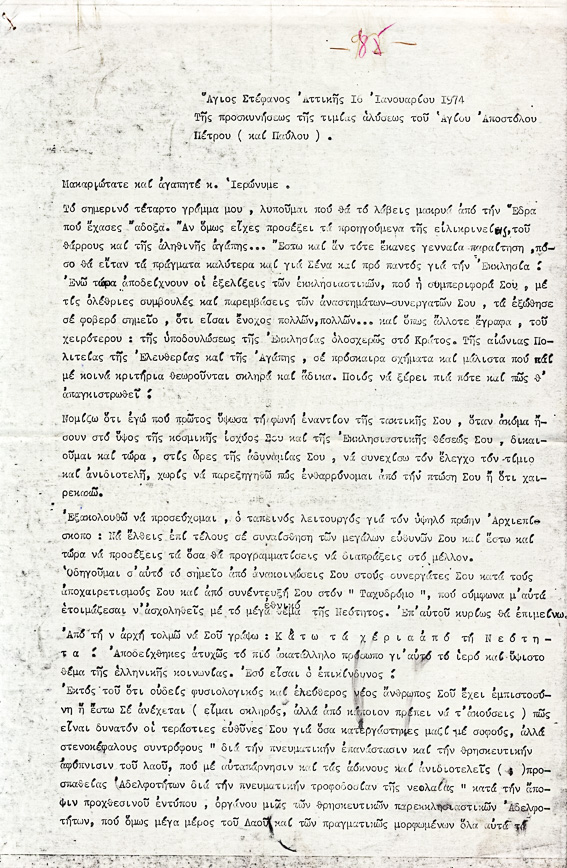 -95-
Ἅγιος Στέφανος Ἀττικῆς 16 Ἰανουαρίου 1974
Τῆς προσκυνήσεως τῆς τιμίας ἁλύσεως τοῦ Ἁγίου Ἀποστόλου
Πέτρου ( καί Παύλου ) .
Μακαριώτατε καί ἀγαπητέ κ. Ἱερώνυμε .
Τό σημερινό τέταρτο γράμμα μου , λυποῦμαι πού θά τό λάβεις μακρυά ἀπό τήν Ἕδρα
πού ἔχασες ἄδοξα. Ἄν ὅμως εἶχες προσέξει τά προηγούμενα τῆς εἰλικρινείας, τοῦ
θάρρους καί τῆς ἀληθινῆς ἀγάπης... Ἔστω καί ἄν τότε ἔκανες γενναία παραίτηση ,πό-
σο θά εἶταν τά πράγματα καλύτερα καί γιά Σένα καί πρό παντός γιά τήν Ἐκκλησία :
Ἐνῶ τώρα ἀποδείχνουν οἱ ἐξελίξεις τῶν ἐκκλησιαστικῶν, πού ἡ συμπεριφορά Σου , μέ
τίς ὀλέθριες συμβουλές καί παρεμβάσεις τῶν ἀναστημάτων-συνεργατῶν Σου , τά ἐξώθησε
σέ φοβερό σημεῖο , ὅτι εἶσαι ἔνοχος πολλῶν,πολλῶν... καί ὅπως ἄλλοτε ἔγραφα , τοῦ
χειρότερου : τῆς ὑποδουλώσεως τῆς Ἐκκλησίας ὁλοσχερῶς στό Κράτος. Τῆς αἰώνιας Πο-
λιτείας τῆς Ἐλευθερίας καί τῆς Ἀγάπης , σέ πρόσκαιρα σχήματα καί μάλιστα πού πάλι
μέ κοινά κριτήρια θεωροῦνται σκληρά καί ἄδικα. Ποιός νά ξέρει πιά πότε καί πῶς θ'
ἀπαγκιστρωθεῖ :
Νομίζω ὅτι ἐγώ πού πρῶτος ὕψωσα τή φωνή ἐναντίον τῆς τακτικῆς Σου , ὅταν ἀκόμα ἤ-
σουν στό ὕψος τῆς κοσμικῆς ἰσχύος Σου καί τῆς Ἐκκλησιαστικῆς θέσεώς Σου , δικαι-
οῦμαι καί τώρα , στίς ὧρες τῆς ἀδυναμίας Σου , νά συνεχίσω τόν ἔλεγχο τόν τίμιο
καί ἀνιδιοτελῆ, χωρίς νά παρεξηγηθῶ πώς ἐνθαρρύνομαι ἀπό τήν πτώση Σου ἤ ὅτι χαι-
ρεκακῶ.
Ἐξακολουθῶ νά προσεύχομαι , ὁ ταπεινός λειτουργός γιά τόν ὑψηλό πρώην Ἀρχιεπί-
σκοπο : Νά ἔλθεις ἐπί τέλους σέ συναίσθηση τῶν μεγάλων εὐθυνῶν Σου καί ἔστω καί
τώρα νά προσέξεις τά ὅσα θά προγραμματίσεις νά διαπράξεις στό μέλλον.
Ὁδηγοῦμαι σ'αὐτό τό σημεῖο ἀπό ἀνακοινώσεις Σου στούς συνεργάτες Σου κατά τούς
ἀποχαιρετισμούς Σου καί ἀπό συνέντευξή Σου στόν " Ταχυδρόμο ", πού σύμφωνα μ'αὐτά
ἑτοιμάζεσαι ν'ἀσχοληθεῖς μέ τό μέγα ἐθνικό θέμα τῆς Νεότητος. Ἐπ'αὐτοῦ κυρίως θά ἐπιμείνω.
Ἀπό τή ν ἀρχή τολμῶ νά Σοῦ γράψω : Κ ά τ ω τ ά χ έ ρ ι α ἀ π ό τ ή Ν ε ό τ η -
τ α : Ἀποδείχθηκες ἀτυχῶς τό πιό ἀκατάλληλο πρόσωπο γι'αὐτό τό ἱερό καί ὕψιστο
θέμα τῆς ἑλληνικῆς κοινωνίας. Ἐσύ εἶσαι ὁ ἐπικίνδυνος :
Ἐκτός τοῦ ὅτι οὐδείς φυσιολογικός καί ἐλεύθερος νέος ἄνθρωπος Σοῦ ἔχει ἐμπιστοσύ-
νη ἤ ἔστω Σέ ἀνέχεται ( εἶμαι σκληρός, ἀλλά ἀπό κάποιον πρέπει νά τ'ἀκούσεις ) πῶς
εἶναι δυνατόν οἱ τεράστιες εὐθῦνες Σου γιά ὅσα κατεργάστηκες μαζί μέ σοφούς, ἀλλά
στενοκέφαλους συντρόφους " διά τήν πνευματικήν ἐπανάστασιν καί τήν θρησκευτικήν
ἀφύπνισιν τοῦ λαοῦ, πού μέ αὐταπάρνησιν καί τάς ἀόκνους καί ἀνιδιοτελεῖς ( ) προ-
σπαθείας Ἀδελφοτήτων διά τήν πνευματικήν τροφοδοσίαν τῆς νεολαίας " κατά τήν ἄπο-
ψιν προχθεσινοῦ ἐντύπου , ὀργάνου μιᾶς τῶν θρησκευτικῶν παρεκκλησιαστικῶν Ἀδελφο-
τήτων, πού ὅμως μέγα μέρος τοῦ Λαοῦ καί τῶν πραγματικῶς μορφωμένων ὅλα αὐτά τά